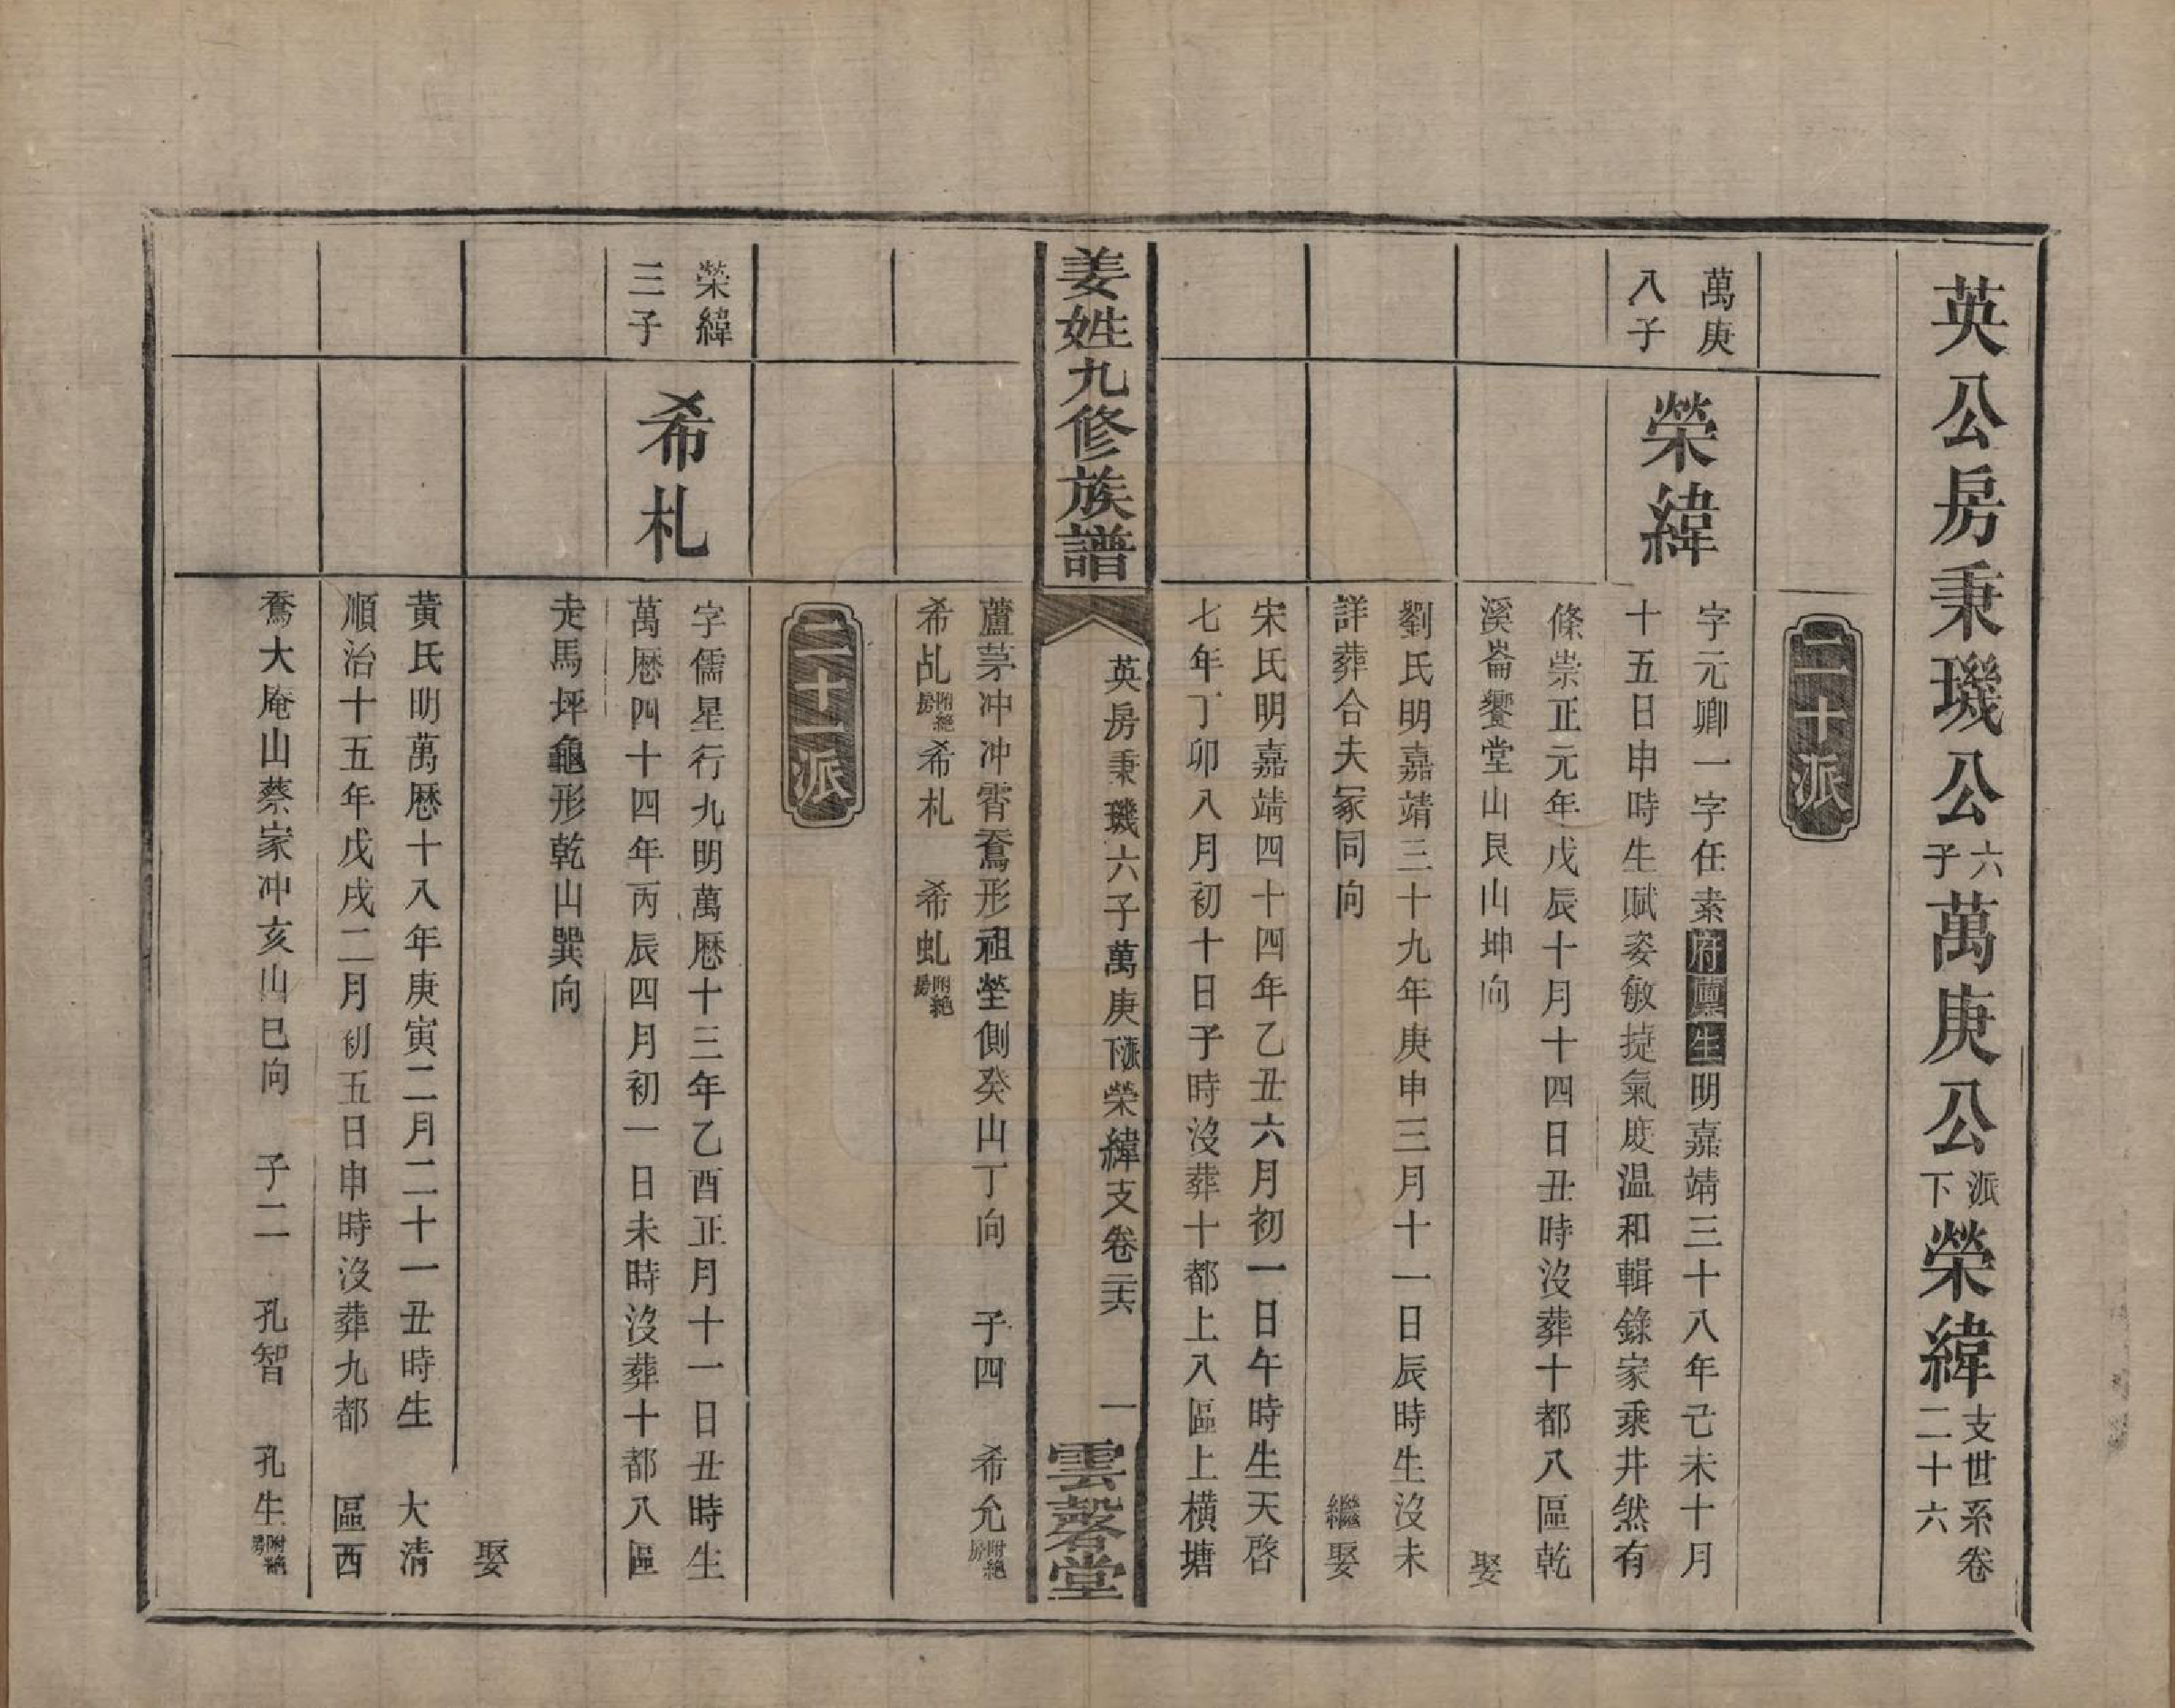 英公房秉璣公六子萬庚公派下榮緯支世系卷二十六
二十派
萬庚
八子
榮緯
字元卿一字任素府廩生明嘉靖三十八年己未十月
十五日申時生賦姿敏捷氣度温和輯錄家乘井然有
條崇正元年戊辰十月十四日丑時沒葬十都八區乾
溪崙饗堂山艮山坤向 娶
劉氏明嘉靖三十九年庚申三月十一日辰時生沒未
詳葬合夫冢同向 繼娶
宋氏明嘉靖四十四年乙丑六月初一日午時生天啓
七年丁卯八月初十日子時沒葬十都上八區上橫塘
姜姓九修族譜
英房秉璣六子萬庚派下榮緯支卷二十六
一
雲磬堂
蘆茅冲冲霄鴦形祖塋側癸山丁向 子四 希允附絕房
希乩附絕房 希札 希虬附絕房
二十一派
榮緯
三子
希札
字儒星行九明萬歷十三年乙酉正月十一日丑時生
萬歷四十四年丙辰四月初一日未時沒葬十都八區
走馬坪龜形乾山巽向 娶
黃氏明萬歷十八年庚寅二月二十一丑時生 大清
順治十五年戊戌二月初五日申時沒葬九都 區西
大庵山蔡家冲亥山巳向 子二 孔智 孔生附絕房